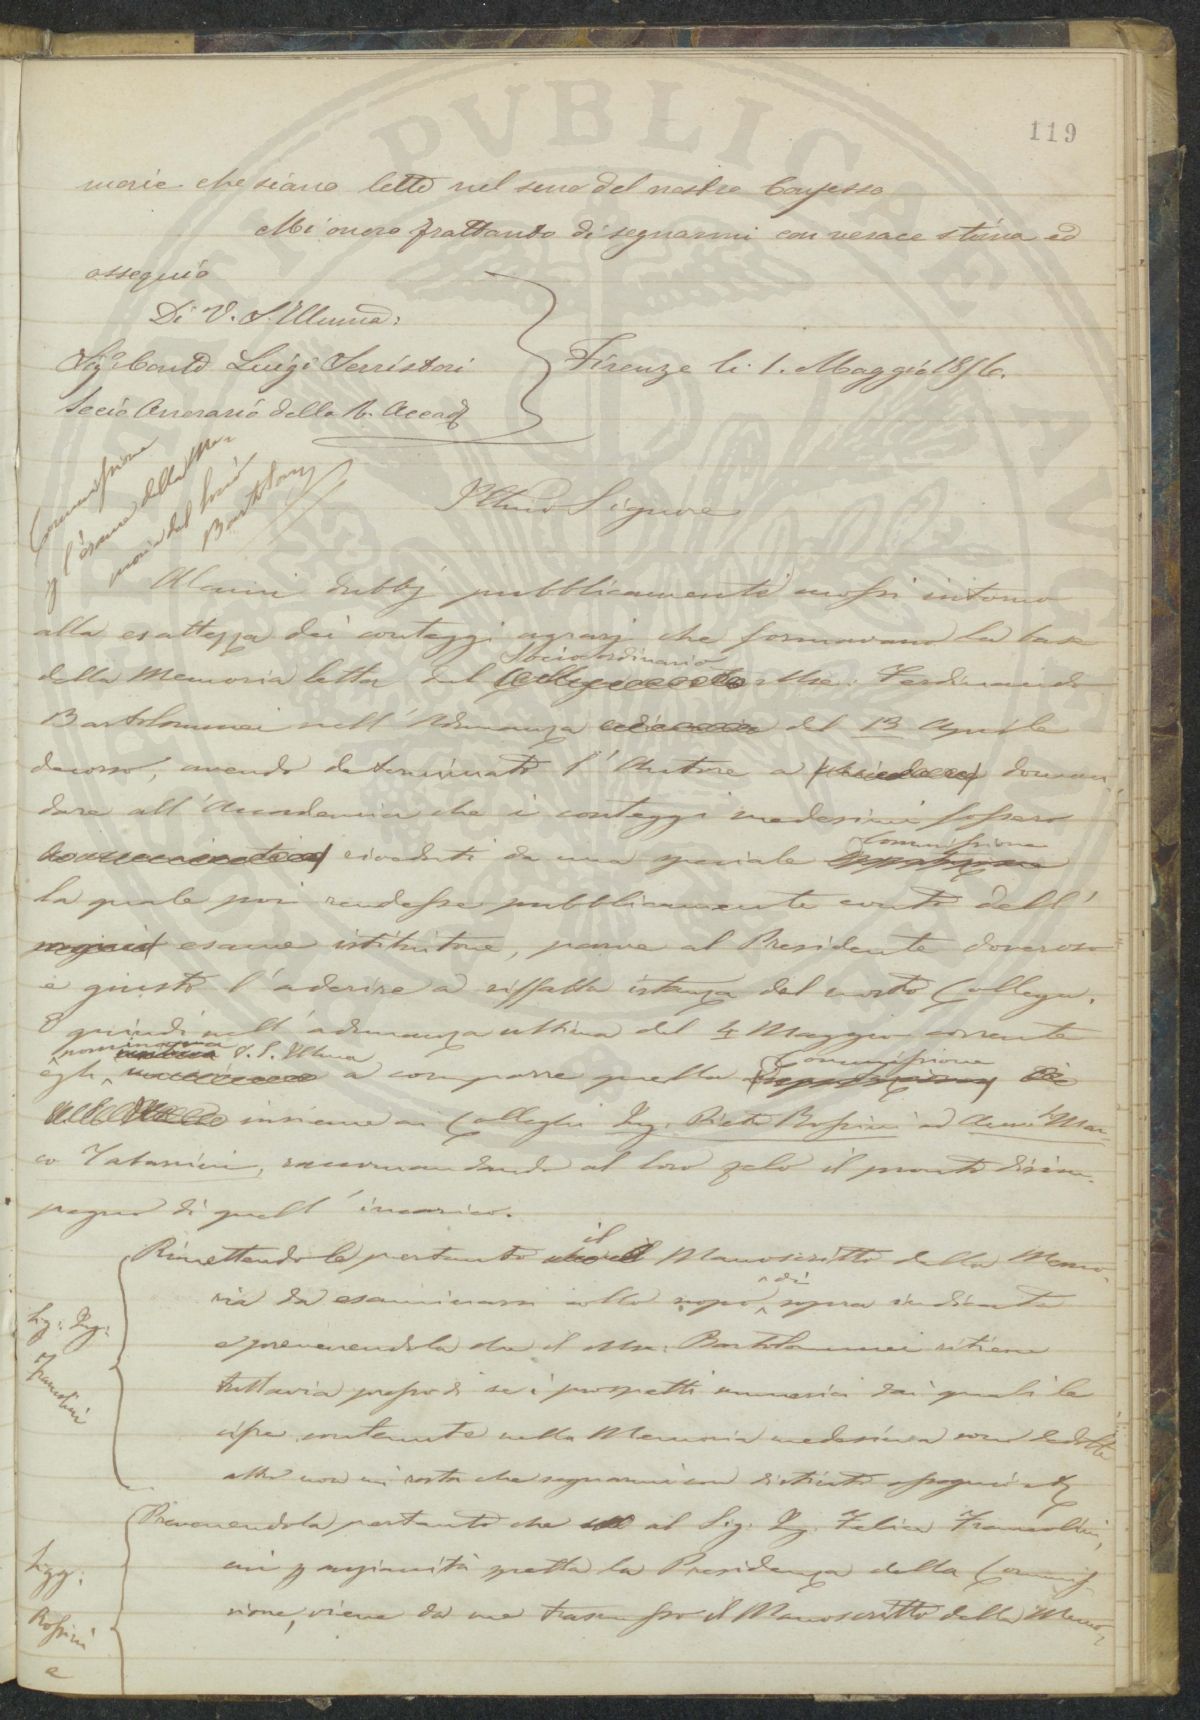 119
morie che siano lette nel seno del nostro Consesso
Mi onoro frattanto di segnarmi con verace stima ed
ossequio
Di V. S. Illuma:
Sig.e Conte Luigi Serristori
Socio Onorario della R. Accad
Firenze li. 1. Maggio 1856.
Commissione
p l'esame della Me=
moria del Socio
Bartolom
Illmo Signore
Alcuni dubbj pubblicamente mossi intorno
alla esattezza dei conteggi agrarj che formavano la base
Socio ordinario
della Memoria letta dal Mse: Ferdinando
Bartolommei nell'Adunanza del 13 Aprile
decorso, avendo determinato l'Autore a doman-
dare all'Accademia che i conteggi medesimi fossero
Commissione
riveduti da una speciale
la quale poi rendesse pubblicamente conto dell'
esame istitutone, parve al Presidente doveroso
e giusto l'aderire a siffatta istanza del nostro Collega.
E quindi nell'adunanza ultima del 4 Maggio corrente
nominava V. S. Illma
Commissione
egli a comporre quella
insieme ai Colleghi Ing. Pietro Rossini ed Avv. Mar-
co Tabarrini, raccomandando al loro zelo il pronto disim-
pegno di quell'incarico.
il
Rimettendole pertanto Manoscritto della Memo-
di
ria da esaminarsi collo scopo sopra indicato
e prevenendola che il Mse: Bartolommei ritiene
tuttavia presso di se i prospetti numerici dai quali le
cifre contenute nella Memoria medesima sono dedotte
altro non mi resta che segnarmi con distinto ossequio
Sig: Ing:
Francolini
Prevenendola pertanto che al Sig. Ing. Felice Francolini,
cui p anzianità spetta la Presidenza della Commis-
sione, viene da me trasmesso il Manoscritto della Memo-
Sigg:
Rossini
e
PVBLICAE